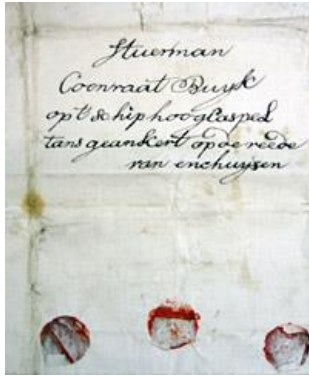 Stuerman
Coenraat Buyk
opt schip hooglasped
tans geankert op de reede
van enchuysen